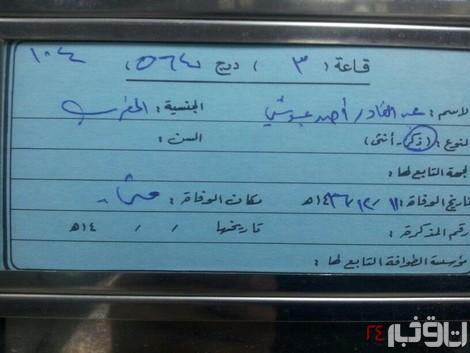 ١٠٤
قاعة ( ٣ ) درج ( ٥٦٤ )
لاسم : عبد القادر أحمد الجنسية : المغرب
لنوع : ( ذكر - أنثى ) السن :
لجهة التابع لها :
تاريخ الوفاة : ١١ / ١٢ / ١٤٣٦هـ مكان الوفاة :
رقم المذكرة : تاريخها / / ١٤هـ
مؤسسة الطوافة التابع لها :